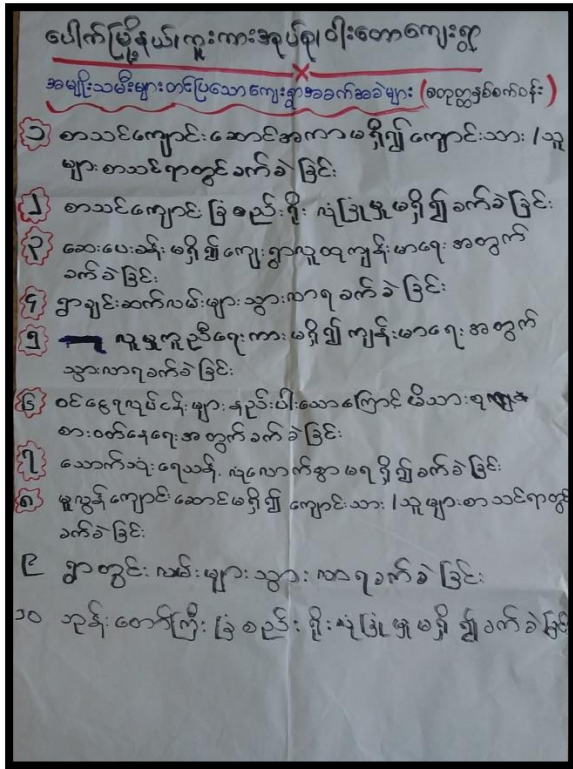 ပေါက်မြို့နယ်၊ ကူးကားအုပ်စု၊ ဝါးတောကျေးရွာ
အမျိုးသမီးများတင်ပြသောကျေးရွာအခက်အခဲများ (စတုတ္ထနှစ်စက်ဝန်း)
၁ စာသင်ကျောင်းဆောင်အကာမရှိ၍ ကျောင်းသား / သူ
များစာသင်ရာတွင်ခက်ခဲခြင်း
၂ စာသင်ကျောင်းခြံစည်းရိုးလုံခြုံမှုမရှိ၍ခက်ခဲခြင်း
၃ ဆေးပေးခန်းမရှိ၍ကျေးရွာလူထုကျန်းမာရေးအတွက်
ခက်ခဲခြင်း
၄ ရွာချင်းဆက်လမ်းများသွားလာရခက်ခဲခြင်း
၅ လူမှုကူညီရေးကားမရှိ၍ကျန်းမာရေးအတွက်
သွားလာရခက်ခဲခြင်း
၆ ဝင်ငွေရလုပ်ငန်းများနည်းပါးသောကြောင့်မိသားစု
စားဝတ်နေရေးအတွက်ခက်ခဲခြင်း
၇ သောက်သုံးရေသန့်လုံလောက်စွာမရရှိ၍ခက်ခဲခြင်း
၈ မူလွန်ကျောင်းဆောင်မရှိ၍ ကျောင်းသား / သူများစာသင်ရာတွင်
ခက်ခဲခြင်း
၉ ရွာတွင်းလမ်းများသွားလာရခက်ခဲခြင်း
၁၀ ဘုန်းတော်ကြီးခြံစည်းရိုးလုံခြုံမှုမရှိ၍ခက်ခဲခြင်း